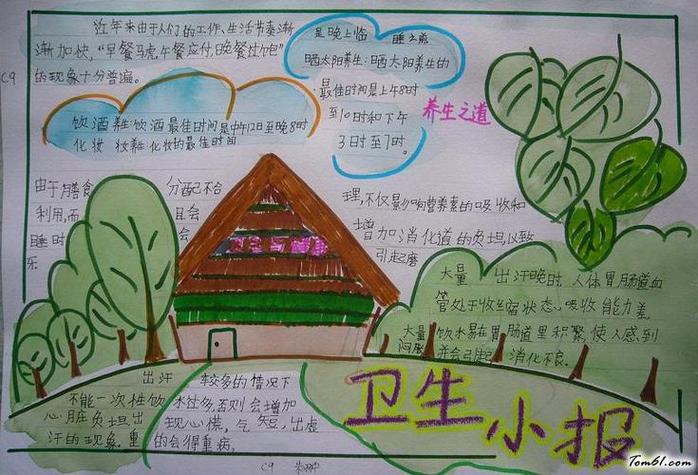 近年来由于人们的工作、生活节奏渐
渐加快,"早餐马虎,午餐应付,晚餐过饱"
的现象十分普遍。
C9
是晚上临 睡之前
晒太阳养生:晒太阳养生的
最佳时间是上午8时
至10时和下午
3时至7时.
养生之道
饮酒养生:饮酒最佳时间是中午12日至晚8时
化妆 妆养:化妆的最佳时间
由于膳食 分配不合 理,不仅影响营养素的吸收和
利用,而 且会 增加消化道的负坦以致
睡时 会 引起磨
乐
大量 出汗晚时 人体胃肠道血
管处于收缩状态,吸收能力差,
大量 饮水易在胃肠道里积聚,使人感到
闷胀 并会引起 消化不良.
出汗 较多的情况下
不能一次性饮 水过多,否则会增加
心脏负坦出 现心慌,气短,出虚
汗的现象,重 的会得重病.
卫生小报
C9
Tom61.com